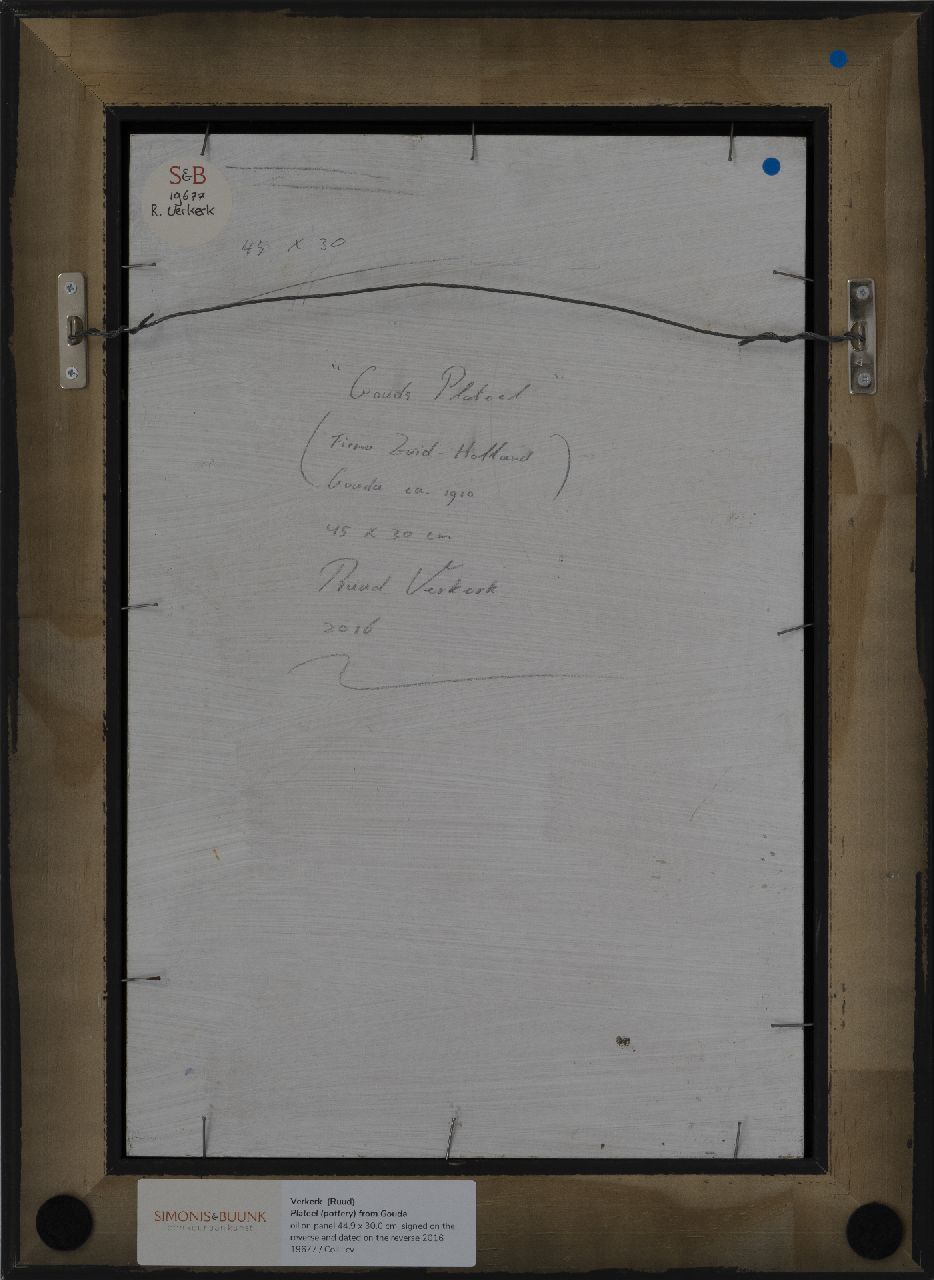 S&B
19677
R. Verkerk
45 x 30
"Gouds Plateel"
(Firma Zuid-Holland
Gouda ca. 1910)
45 x 30 cm
Ruud Verkerk
2016
SIMONIS&BUUNK
Verkerk (Ruud)
Plateel (pottery) from Gouda
oil on panel 44.9 x 30.0 cm, signed on the
reverse and dated on the reverse 2016
19677 /